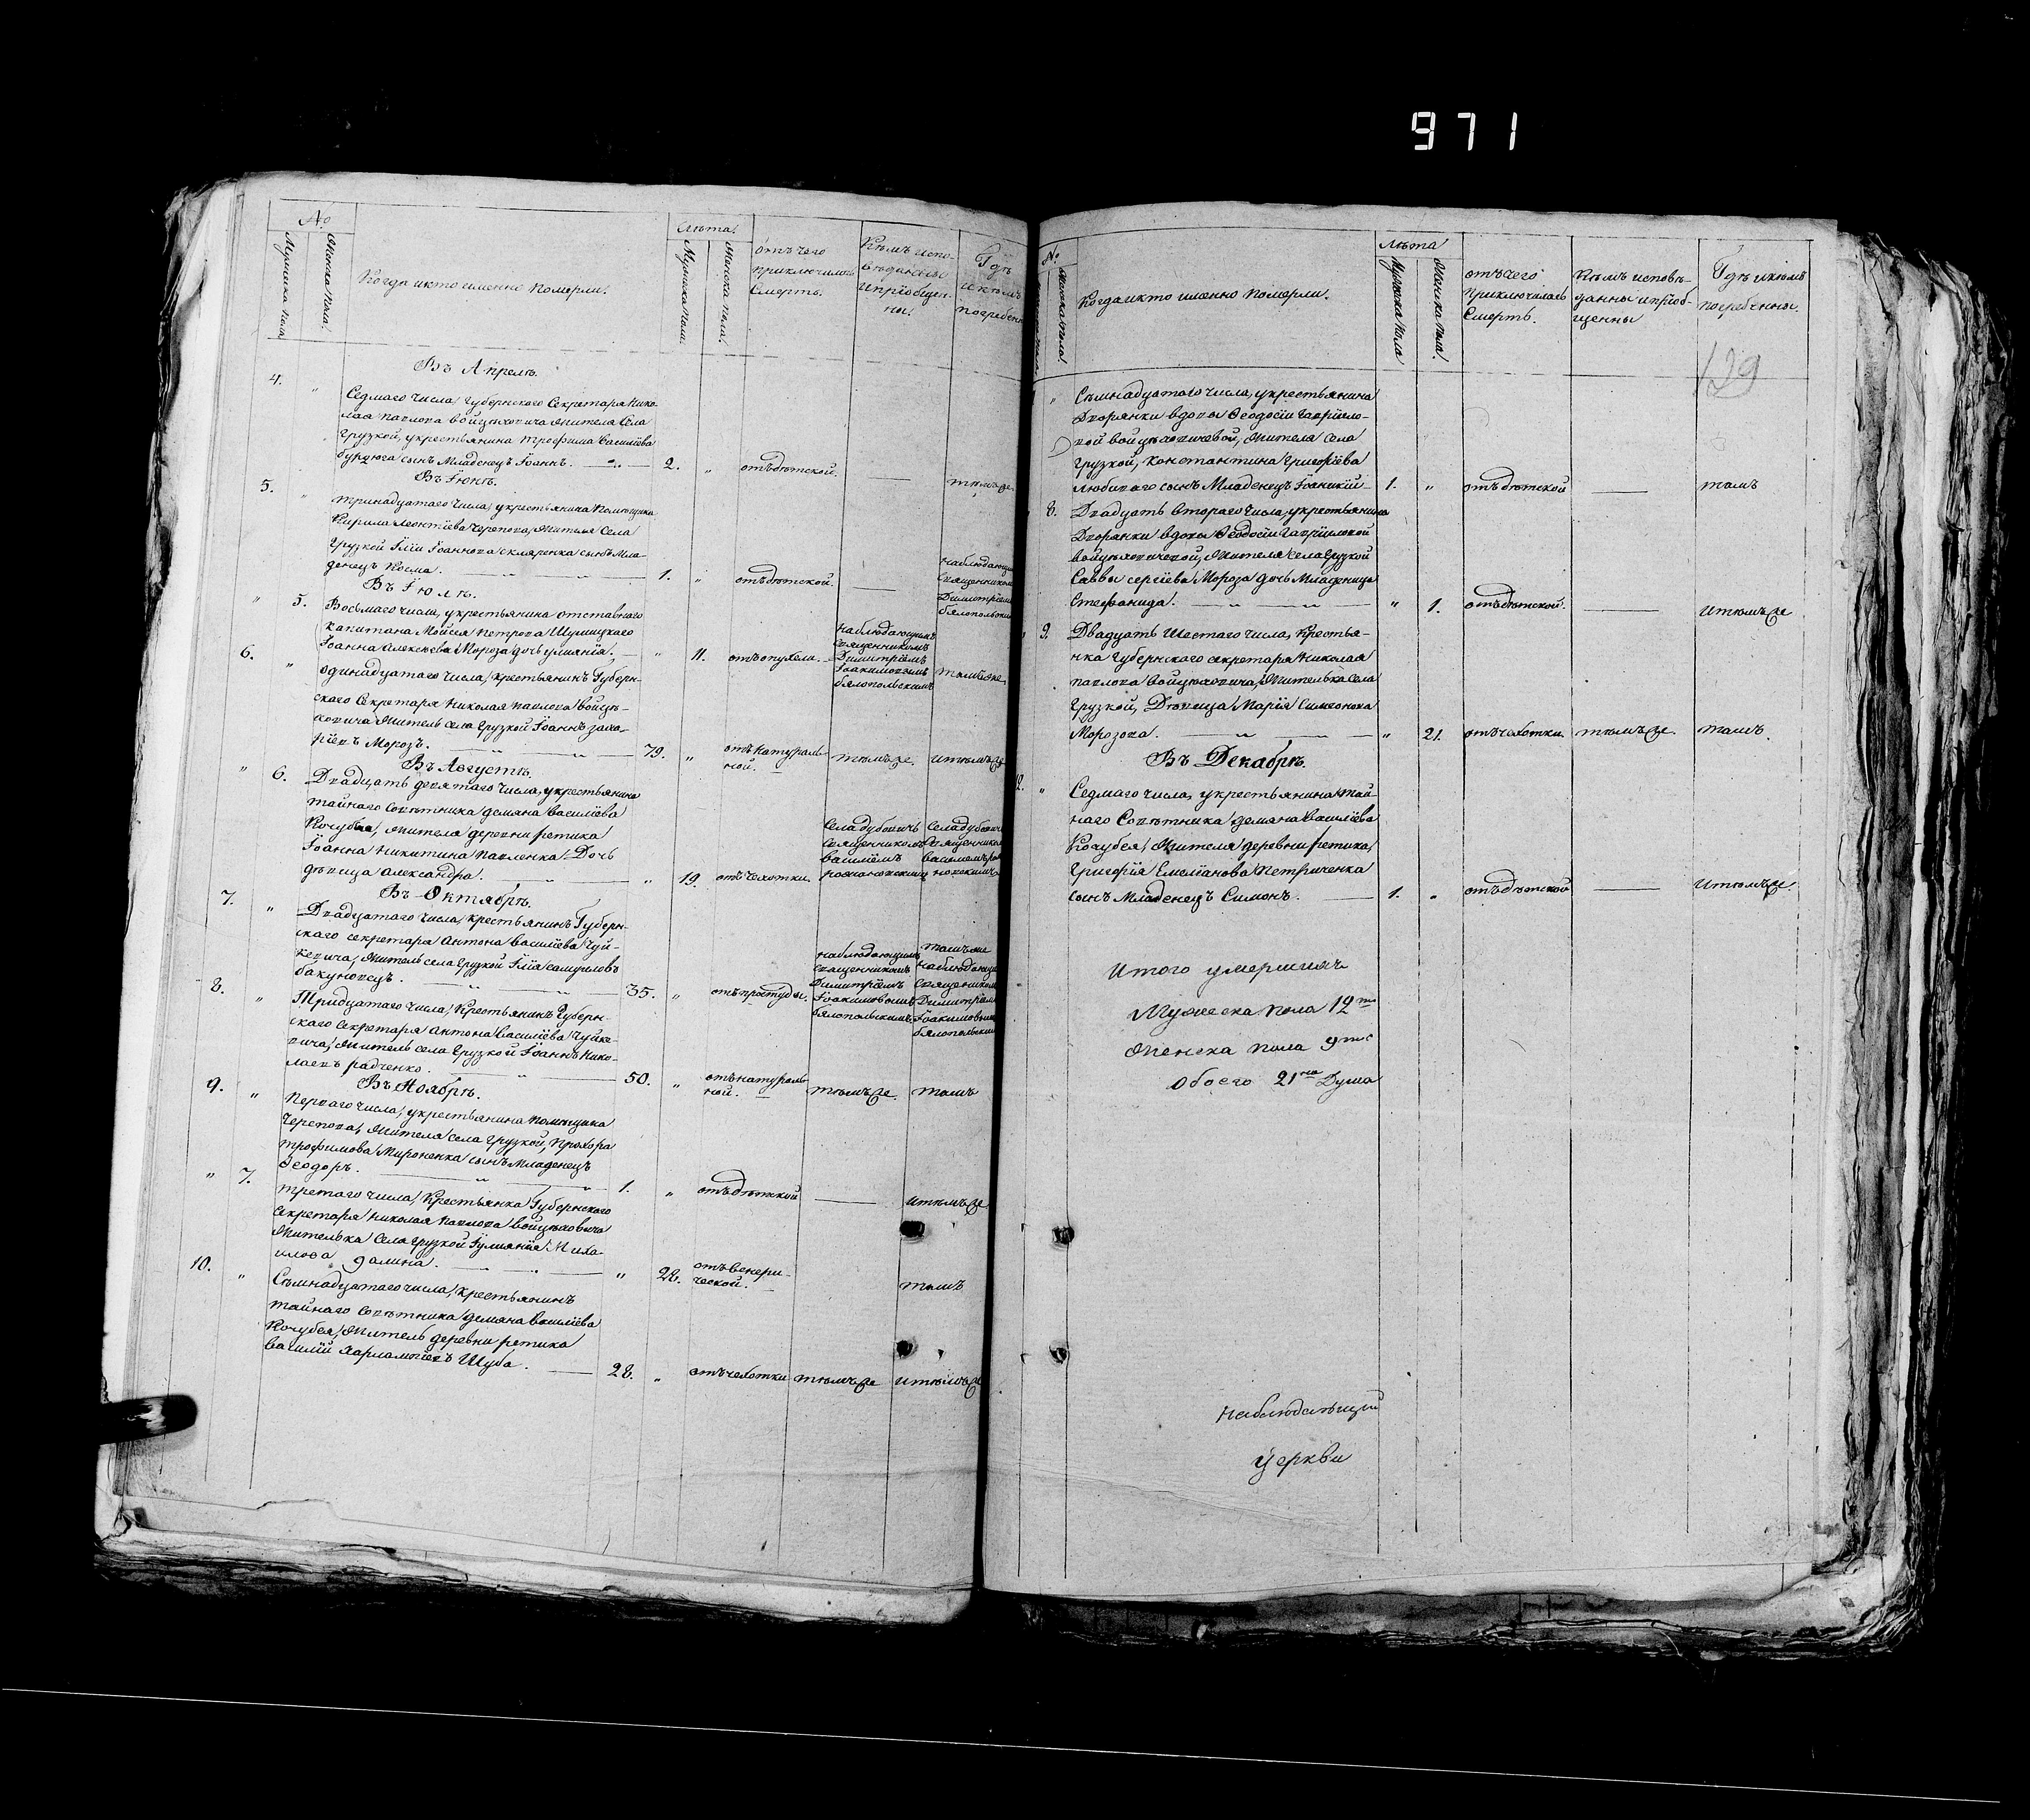 971
№
Мужеска пола
Женска пола.
Когда и кто именно померли.
Лѣта.
Мужеска пола.
Женска пола.
отъ чего
приключилась
Смерть.
Кѣмъ испо-
вѣданы
и пріобщен-
ны.
Гдѣ
и кѣмъ
погребен
Въ Апрелѣ.
4. " Седмаго числа, Губернского Секретаря Нико-
лая Павлова Войцѣховича жителя Села
Грузкой, укрестьянина Трофима Василіева
бурдюга сынъ Младенецъ Іоаннъ. 2. " отъ дѣтской. — тѣмъ же
Въ Іюнѣ.
5. " тринадцатаго числа, укрестьянина Помѣщика
Кирила Леонтіева Черепова, жителя Села
Грузкой Іліи Іоаннова скляренка сынъ Мла-
денецъ Косма. 1. " отъ дѣтской. —
наблюдающи
Священником
Димитріем
бялопольски
Въ Іюлѣ.
" 5. Восьмаго числа, укрестьянина отставнаго
Капитана Моисея Петрова Шумицкаго
Іоанна Алексѣева Мороза дочь улианія. — " 11. отъ опухели.
наблюдающимъ
Священникомъ
Димитріемъ
Іоакимовымъ
бялопольскимъ
тѣмъ же
6. " одинадцатаго числа, крестьянинъ Губерн-
скаго Секретаря Николая Павлова Войцѣ-
ховича житель села Грузкой Іоаннъ заха-
ріевъ Морозъ. 79. " отъ натураль-
ной. — тѣмъ же. и тѣмъ же
Въ Августѣ.
" 6. Двадцать девятаго числа, укрестьянина
тайнаго Совѣтника демяна василіева
Кочубея, жителя деревни ретика
Іоанна Никитина Павленка Дочь
дѣвица Александра. " 19. отъ чехотки.
села дубовичь
Священникомъ
василіемъ
Въ Октябрѣ.
7. " Двадцатаго числа, крестьянинъ Губерн-
скаго секретаря Антона василіева Чуй-
кевича, житель села Грузкой Ілія самуиловъ
бакуновецъ. 35. " отъ простуды.
наблюдающимъ
священникомъ
Димитріемъ
Іоакимовымъ
бялопольскимъ
тамъ же
наблюдающи
Священником
Димитріем
Іоакимовым
бялопольским
8. " Тридцатаго числа, Крестьянинъ Губерн-
скаго секретаря Антона василіева Чуйке-
вича, житель села Грузкой Іоаннъ Нико-
лаевъ радченко. 50. " отъ натураль-
ной. — тѣмъ же. тамъ
Въ Ноябрѣ.
9. " Перваго числа, укрестьянина Помѣщика
Черепова, жителя села Грузкой, Прохора
трофимова Мироненка сынъ Младенецъ
Ѳеодоръ. 1. " отъ дѣтской — и тѣмъ же
" 7. третаго числа, Крестьянка Губернского
секретаря Николая Павлова Войцѣховича
жителька Села Грузкой Іулианія Миха-
илова галина. " 22. отъ венери-
ческой. — тамъ
10. " Сѣмнадцатаго числа, крестьянинъ
тайнаго совѣтника демяна василіева
Кочубея, житель деревни ретика
василій харлампіевъ Шуба. 28. " отъ чехотки тѣмъ же и тѣмъ же
№
Женска пола.
Когда и кто именно померли.
Лѣта
Мужеска пола
Женска пола.
отъ чего
приключилась
Смерть.
Кѣмъ исповѣ-
данны и пріоб-
щенны
Гдѣ и кѣмъ
погребенны.
129
" Сѣмнадцатого числа, укрестьянина
Дворянки вдовы Ѳеодосіи Гавріило-
вой войцѣховичевой, жителя села
Грузкой, Константина Григоріева
любиваго сынъ Младенецъ Іоаникій — 1. " отъ дѣтской — тамъ
8. Двадцать втораго числа, укрестьянина
Дворянки вдовы Ѳеодосіи Гавріиловой
войцѣховичевой, жителя села Грузкой
Саввы сергіева Мороза дочь Младеница
Стефанида. " 1. отъ дѣтской. — и тѣмъ же
9. Двадцать шестаго числа, Крестья-
нка Губернского секретаря Николая
Павлова Войцѣховича, жителька села
Грузкой, Дѣвица Марія Симеонова
Морозова. " 21. отъ чехотки. тѣмъ же. тамъ.
Въ Декабрѣ.
12. " Седмаго числа, укрестьянина тай-
наго Совѣтника демяна василіева
Кочубея, жителя деревни ретика,
Григорія Емеліанова Петриченка
сынъ Младенецъ Симонъ. — 1. " отъ дѣтской — и тѣмъ же.
Итого умершихъ
Мужеска пола 12ть
Женска пола 9ть
обоего 21на Душа
наблюдающий
церкви